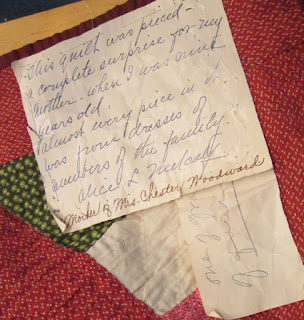 This quilt was pieced -
a complete surprise for my
mother - when I was nine
years old.
Almost every piece in it
was from dresses of
members of the family.
Alice L Metcalf
Mother of Mrs. Chester Woodward